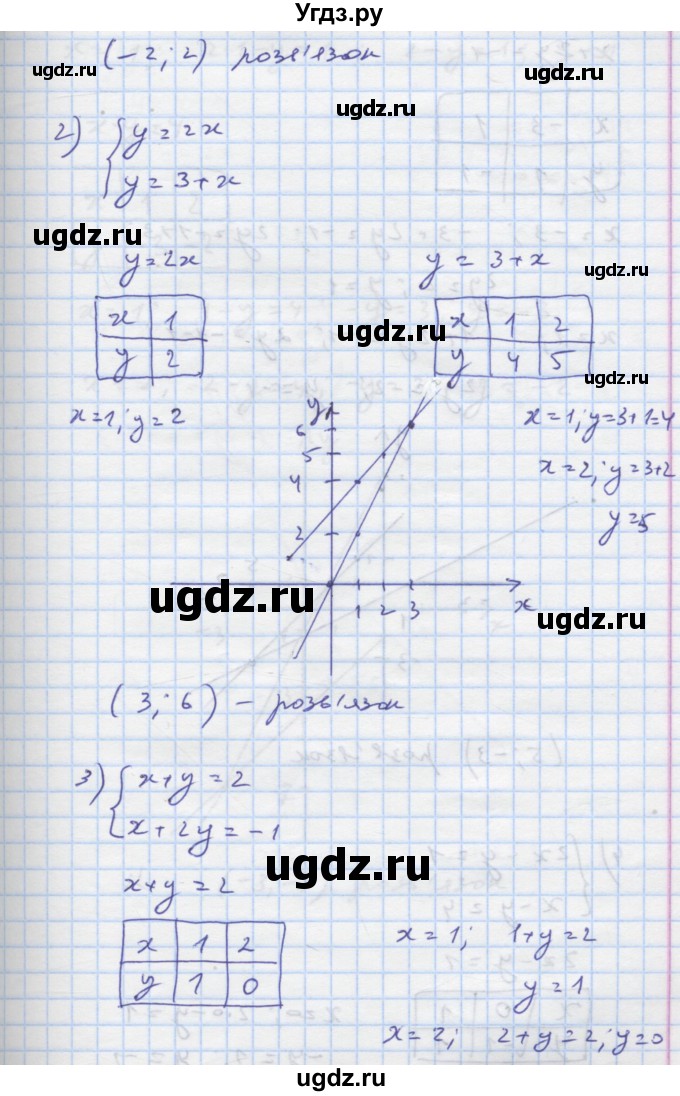 Угдз.ру
ugdz.ru
(-2; 2) розв'язок
ugdz.ru
2) { y = 2x
y = 3 + x
ugdz.ru
y = 2x
y = 3 + x
ugdz.ru
x | 1
y | 2
x | 1 | 2
y | 4 | 5
ugdz.ru
ugdz.ru
x = 1; y = 2
x = 1; y = 3+1 = 4
x = 2; y = 3+2
y = 5
y
6
5
4
2
1 2 3
x
ugdz.ru
ugdz.ru
(3; 6) - розв'язок
3) { x + y = 2
x + 2y = -1
ugdz.ru
x + y = 2
x | 1 | 2
y | 1 | 0
x = 1; 1 + y = 2
y = 1
x = 2; 2 + y = 2; y = 0
ugdz.ru